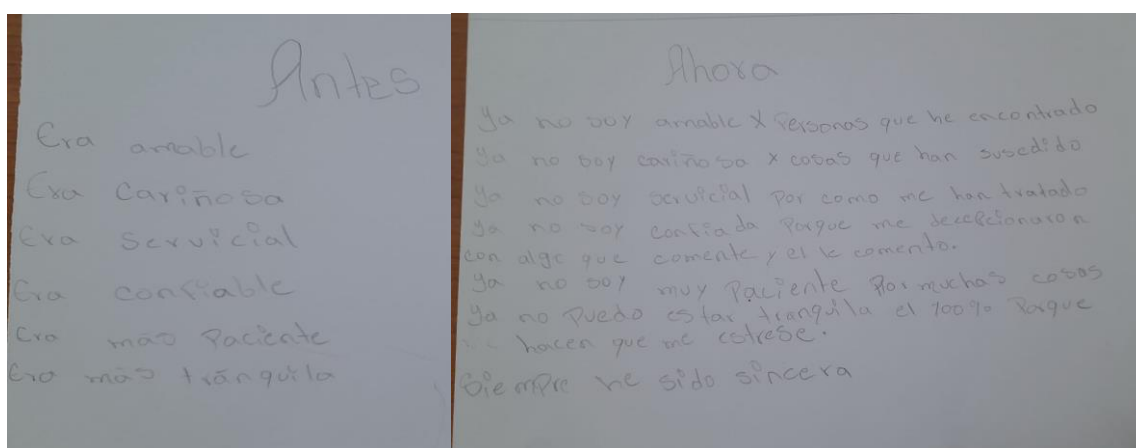 Antes
Era amable
Era cariñosa
Era servicial
Era confiable
Era más Paciente
Era más tránquila
Ahora
Ya no soy amable x Personas que he encontrado
Ya no soy cariñosa x cosas que han susedido
Ya no soy servicial por como me han tratado
Ya no soy confiada Porque me decepcionaron
con algo que comente y el comento.
Ya no soy muy Paciente Por muchas cosas
Ya no Puedo estar tranquila el 100% Porque
hacen que me estrese.
Siempre he sido sincera